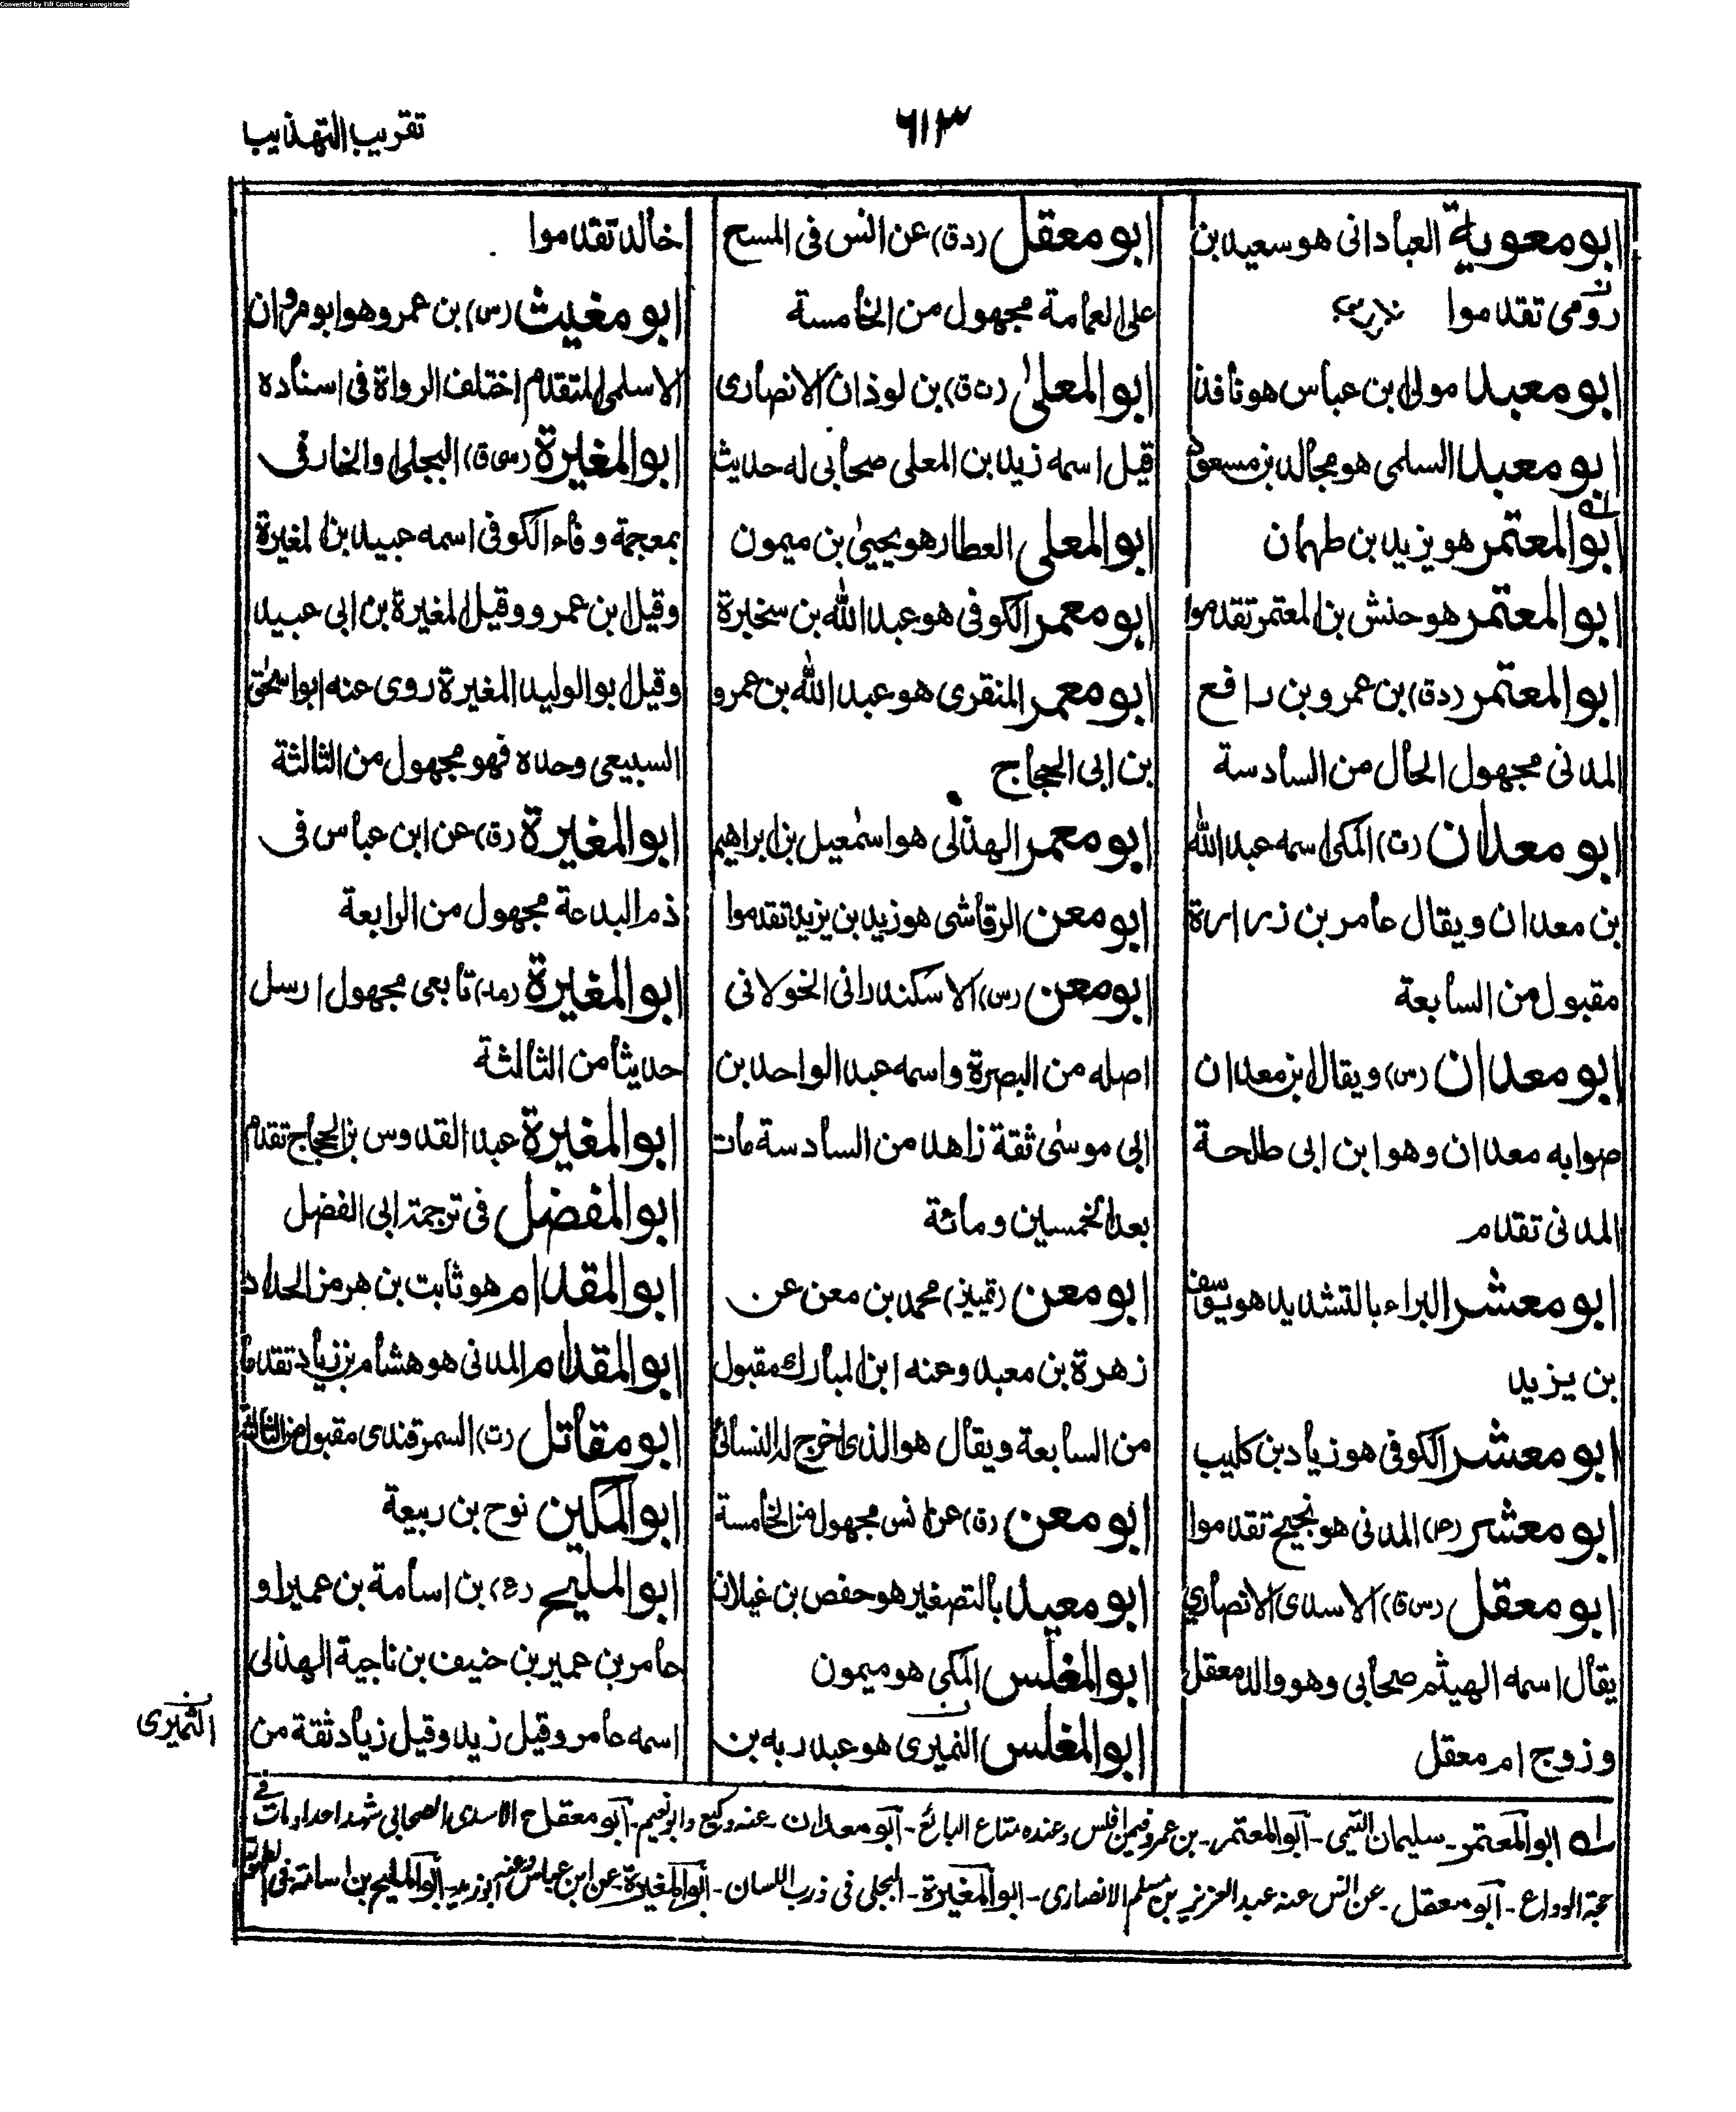 Converted by Tiff Combine - unregistered
٦١٣
تقريب التهذيب
ابو معوية العبادانى هو سعيد بن
رومى تقدموا
ابو معبد مولى ابن عباس هو نافذ
ابو معبد السلمى هو مجالد بن مسعود
ابو المعتمر هو يزيد بن طهمان
ابو المعتمر هو حنش بن المعتمر تقدموا
ابو المعتمر (دق) بن عمرو بن رافع
المدنى مجهول الحال من السادسة
ابو معدان (ت) المكى اسمه عبد الله
بن معدان ويقال عامر بن زرارة
مقبول من السابعة
ابو معدان (س) ويقال ابن معدان
صوابه معدان وهو ابن ابى طلحة
المدنى تقدم
ابو معشر البراء بالتشديد هو يوسف
بن يزيد
ابو معشر الكوفى هو زياد بن كليب
ابو معشر المدنى هو نجيح تقدموا
ابو معقل (س ق) الاسدى الانصاري
يقال اسمه الهيثم صحابى وهو والد معقل
و زوج ام معقل
ابو معقل (دق) عن انس فى المسح
على العمامة مجهول من الخامسة
ابو المعلىٰ (ت ق) بن لوذان الانصارى
قيل اسمه زيد بن المعلى صحابى له حديث
ابو المعلى العطار هو يحيىٰ بن ميمون
ابو معمر الكوفى هو عبد الله بن سخبرة
ابو معمر المنقرى هو عبد الله بن عمرو
بن ابى الحجاج
ابو معمر الهذلى هو اسمٰعيل بن ابراهيم
ابو معن الرقاشى هو زيد بن يزيد تقدموا
ابو معن (س) الاسكندرانى الخولانى
اصله من البصرة واسمه عبد الواحد بن
ابى موسىٰ ثقة زاهد من السادسة مات
بعد الخمسين ومائة
ابو معن (تمييز) محمد بن معن عن
زهرة بن معبد وعنه ابن المبارك مقبول
من السابعة ويقال هو الذى اخرج له النسائى
ابو معن (ق) عن انس مجهول من الخامسة
ابو معيد بالتصغير هو حفص بن غيلان
ابو المغلس المكى هو ميمون
ابو المغلس النميرى هو عبد ربه بن
خالد تقدموا
ابو مغيث (س) بن عمرو وهو ابو مروان
الاسلمى المتقدم اختلف الرواة فى اسناده
ابو المغيرة (سى ق) البجلى او الخارفى
بمعجمة وفاء الكوفى اسمه عبيد بن المغيرة
وقيل ابن عمرو وقيل المغيرة بن ابى عبيد
وقيل ابو الوليد المغيرة روى عنه ابو اسحٰق
السبيعى وحده فهو مجهول من الثالثة
ابو المغيرة (ق) عن ابن عباس فى
ذم البدعة مجهول من الرابعة
ابو المغيرة (مد) تابعى مجهول ارسل
حديثا من الثالثة
ابو المغيرة عبد القدوس بن الحجاج تقدم
ابو المفضل فى ترجمة ابى الفضل
ابو المقدام هو ثابت بن هرمز الحداد
ابو المقدام المدنى هو هشام بن زياد تقدما
ابو مقاتل (ت) السمرقندى مقبول من الثالثة
ابو المكين نوح بن ربيعة
ابو المليح (ع) بن اسامة بن عمير او
عامر بن عمير بن حنيف بن ناجية الهذلى
اسمه عامر وقيل زيد وقيل زياد ثقة من
النميرى
ابو المعتمر۔ سليمان التيمى۔ ابو المعتمر۔ بن عمرو فيمن افلس وعنده متاع البائع۔ ابو معدان۔ عنه وكيع وابو نعيم۔ ابو معقل الاسدى الصحابي شهد احدا ومات فى
حجة الوداع۔ ابو معقل۔ عن انس عنه عبد العزيز بن مسلم الانصارى۔ ابو المغيرة۔ البجلى فى ذرب اللسان۔ ابو المغيرة عن ابن عباس وعنه ابو زيد۔ ابو المليح بن اسامة فى